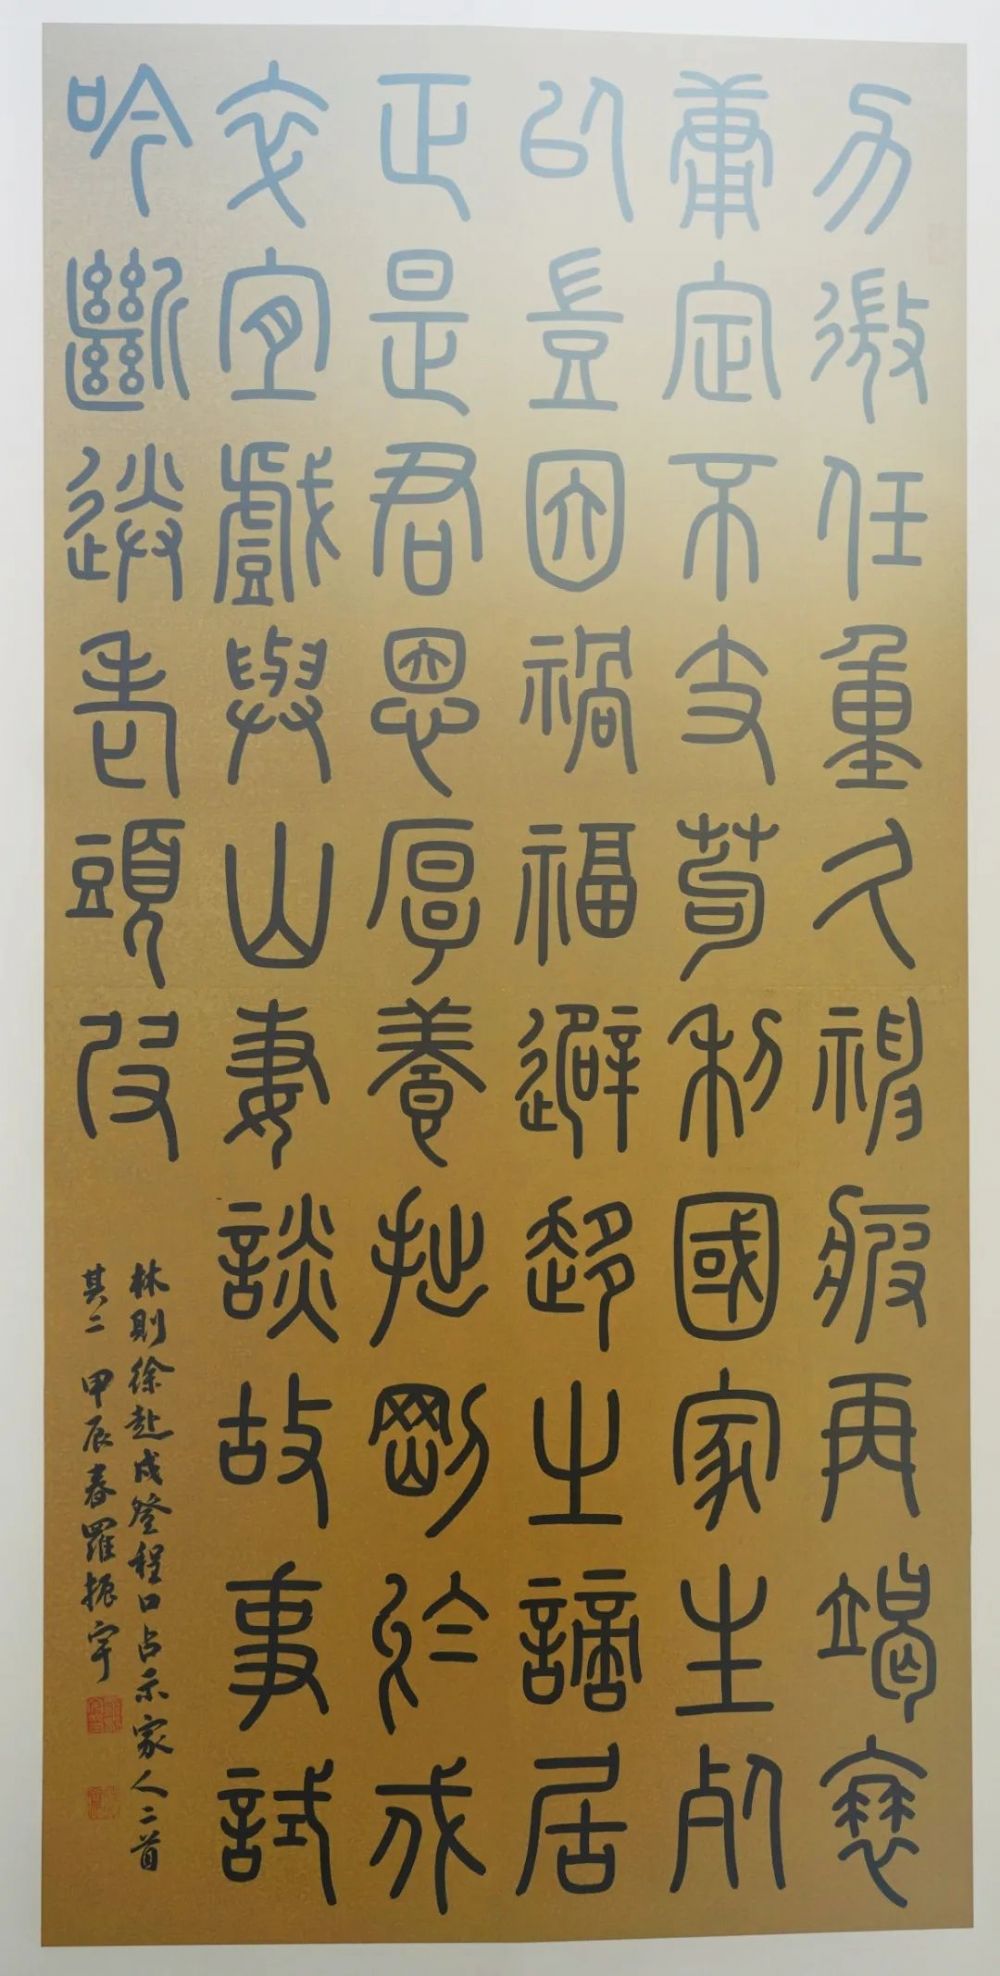 力微任重久神疲再竭衰
庸定不支苟利國家生死
以豈因禍福避趨之謫居
正是君恩厚養拙剛於戍
卒宜戲與山妻談故事試
吟斷送老頭皮
林則徐赴戍登程口占示家人二首
其二 甲辰春羅振宇